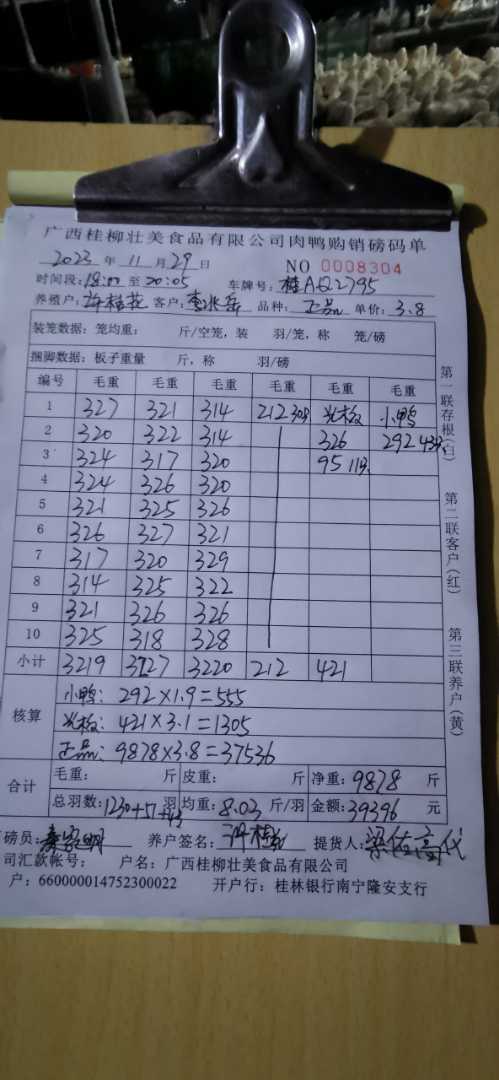 广西桂柳壮美食品有限公司肉鸭购销磅码单
2023 年 11 月 29 日 NO 0008304
时间段: 18:00 至 20:05 车牌号: 桂A 2795
养殖户: 许桂花 客户: 品种: 正品 单价: 3.8
装笼数据: 笼均重: 斤/空笼, 装 羽/笼, 称 笼/磅
捆脚数据: 板子重量 斤, 称 羽/磅
编号 毛重 毛重 毛重 毛重 毛重 毛重
1 327 321 314 212 光板 小鸭
2 320 322 314 326 292
3 324 317 320 95
4 324 326 320
5 321 325 326
6 326 327 321
7 317 320 329
8 314 325 322
9 321 326 326
10 325 318 328
小计 3219 3227 3220 212 421
核算
小鸭: 292×1.9=555
光板: 421×3.1=1305
正品: 9878×3.8=37536
合计
毛重: 斤 皮重: 斤 净重: 9878 斤
总羽数: 1230+57+43 羽 均重: 8.03 斤/羽 金额: 39396 元
磅员: 养户签名: 许桂花 提货人:
司汇款帐号: 户名: 广西桂柳壮美食品有限公司
户: 660000014752300022 开户行: 桂林银行南宁隆安支行
第一联存根(白)
第二联客户(红)
第三联养户(黄)